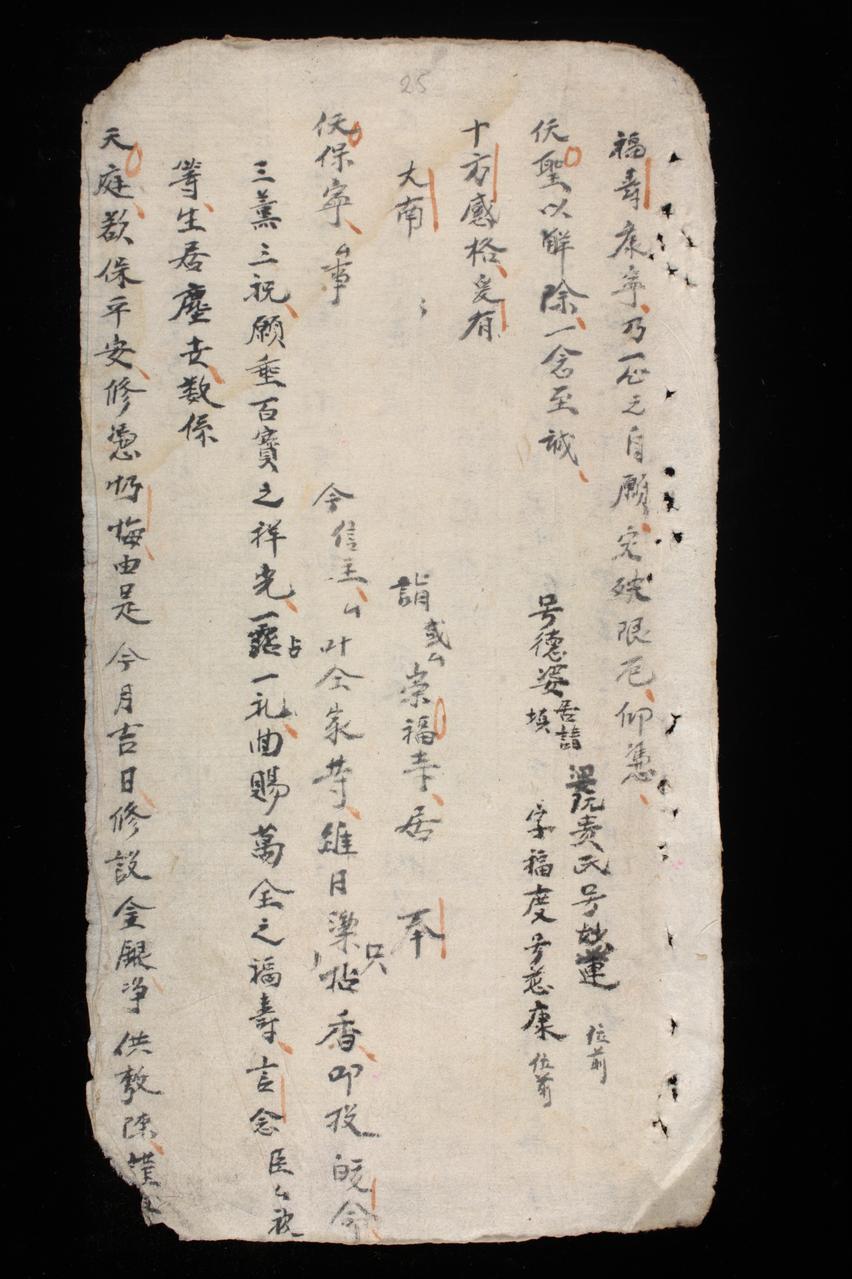 25
福壽康寧乃一心之自願完破限厄仰憑
仗聖以解除一念至誠
号德姿
居請
填
阮責氏号妙蓮 位前
字福度号慈康 位前
十方感格爰有
大南
詣 或ム 崇福寺居 奉
仸保寧ム事
今信主ム叶仝家等維日 只拈香叩投 命
三薰三祝願垂百寶之祥光一 占一礼曲賜萬全之福壽言念臣ム被
等生居塵世数係
天庭欲保平安修憑 悔由是今月吉日修設金銀净供敷陳